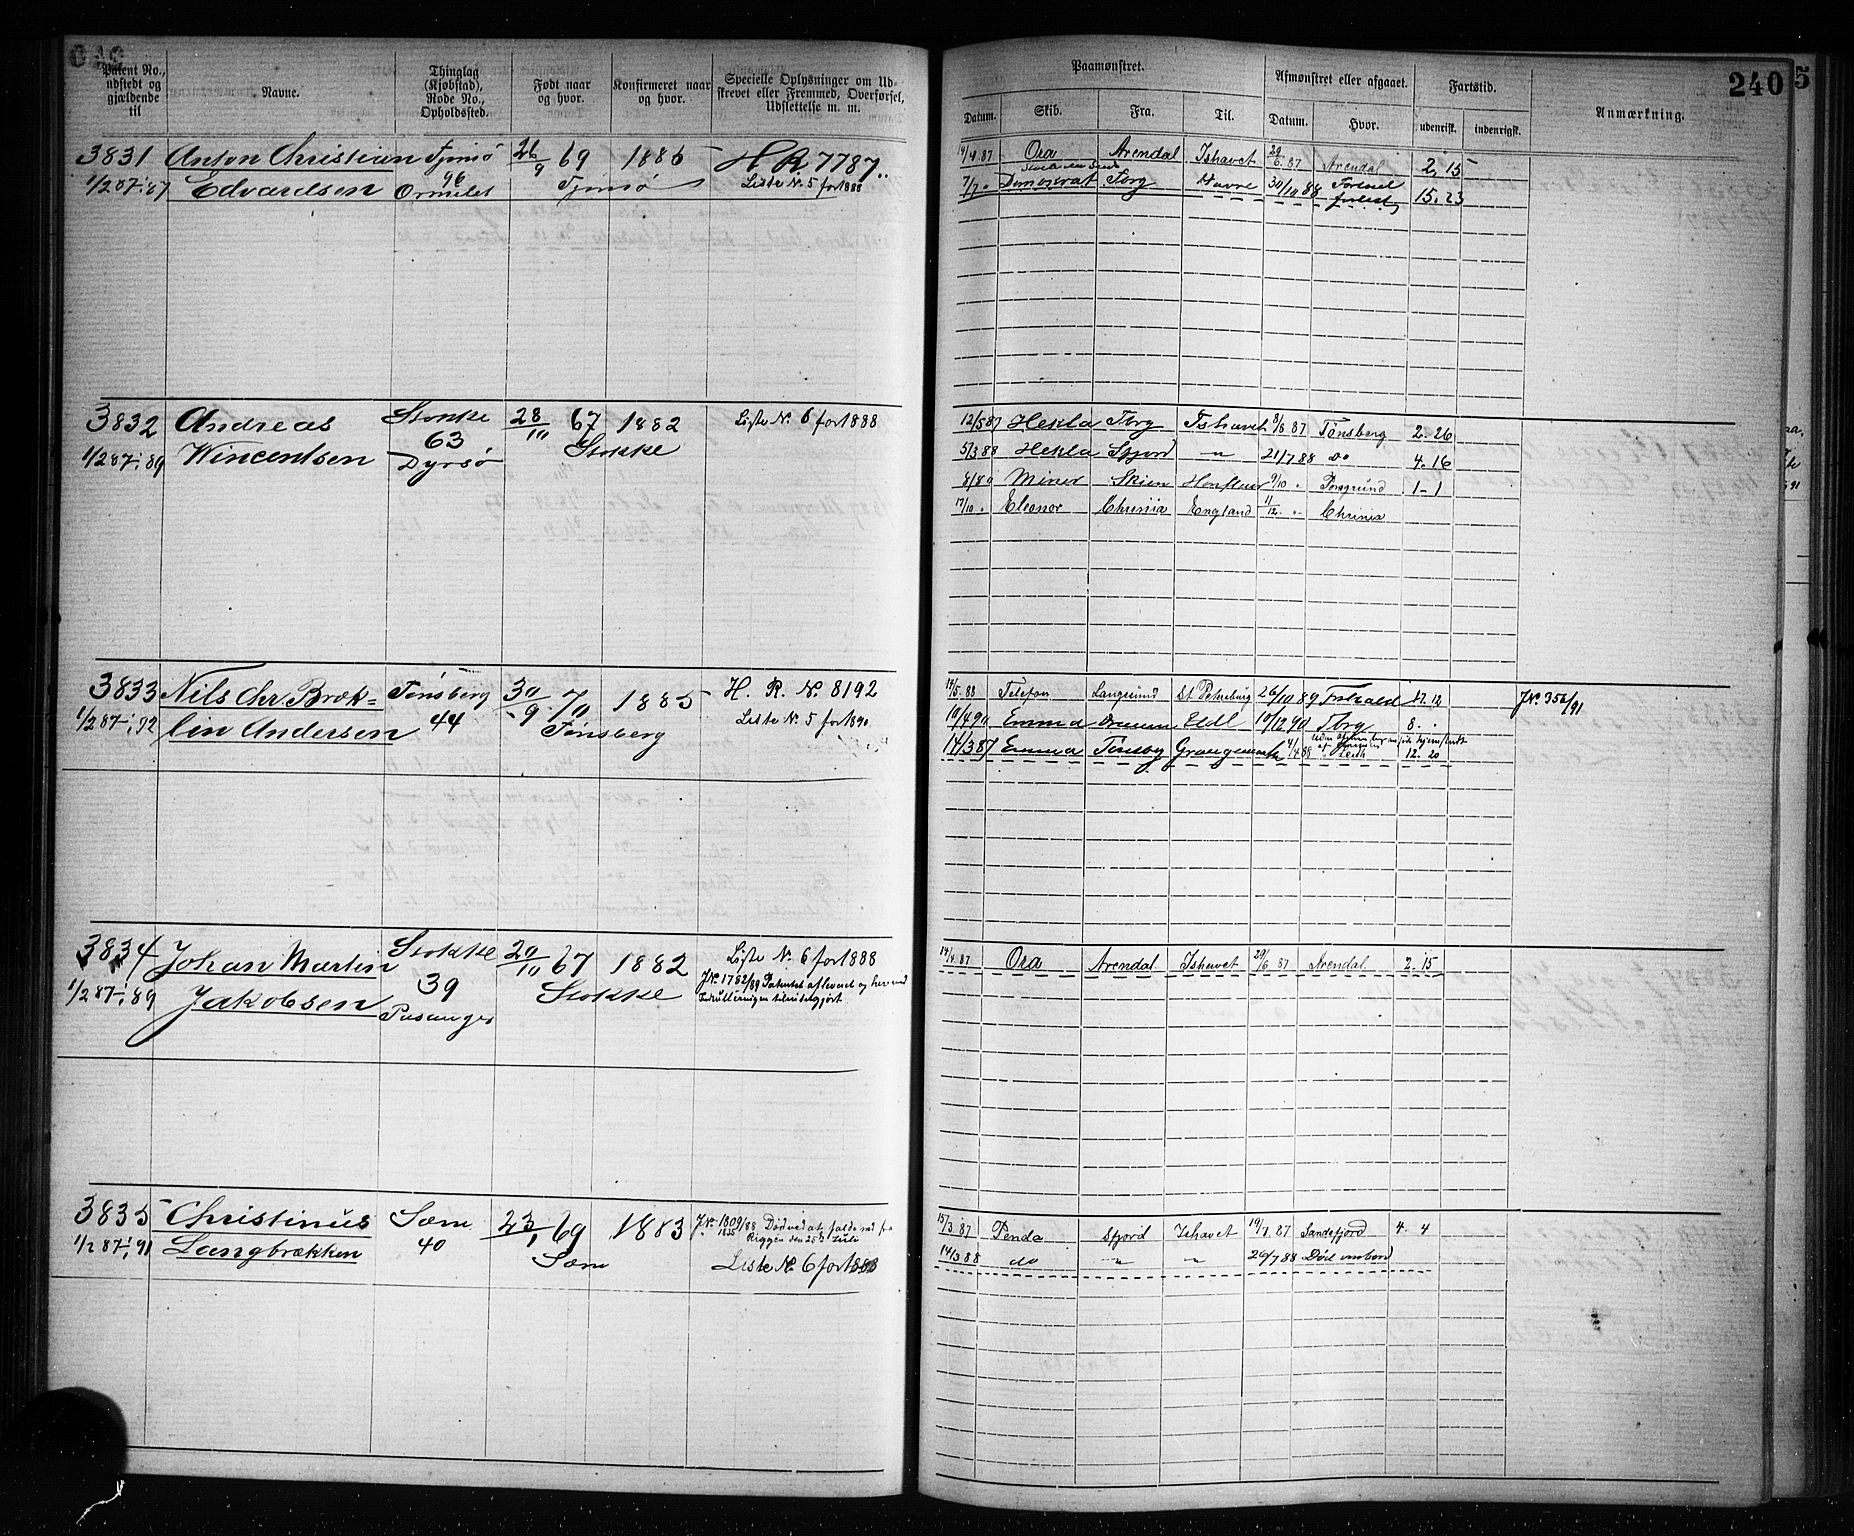 Patent No., udstedt og gjældende til
Navne.
Thinglag (Kjøbstad), Rode No., Opholdssted.
Født naar og hvor.
Konfirmeret naar og hvor.
Specielle Oplysninger om Udskrevet eller Fremmed, Overførsel, Udslettelse m. m.
Paamønstret.
Afmønstret eller afgaaet.
Fartstid.
Anmærkning.
240
5
Datum.
Skib.
Fra.
Til.
Datum.
Hvor.
udenrisk.
indenrigsk.
3831 Anton Christian Tjømø 26/9 69 1885 H R 7787
1/2 87 1/1 87 Edvardsen 96 Ormelet Tjømø Liste N. 5 for 1888
14/4 87 Ora Arendal Ishavet 29/6 87 Arendal 2, 15
7/7 " Demokrat Tbrg Havre 30/10 88 15. 23
3832 Andreas Stokke 28/10 67 1882 Liste N. 6 for 1888
63
1/2 87 1/1 89 Wincentsen Dyrsø Stokke
12/5 87 Hekla Tbrg Ishavet 8/8 87 Tønsberg 2. 26
5/3 88 Hekla Sfjord " 21/7 88 do 4. 16
8/8 Miner Skien Honfleur 9/10 " Porsgrund 1 - 1
17/10 " Eleonor Chrenia England 11/12 " Chrinia
3833 Nils Chr. Bræk- Tønsberg 30/9 70 1885 H. R. N. 8192
1/2 87 1/1 92 lin Andersen 44 Tønsberg Liste N. 5 for 1890
14/5 88 Telefon Langesund St Petersburg 26/10 89 12 J N. 356/91
10/4 90 Emma Drammen 10/12 90 Tbrg 8. -
14/3 87 Emma Tønsbg Grangemouth 4/4 88 Leith 12. 20
3834 Johan Martin Stokke 20/10 67 1882 Liste N. 6 for 1888
39 J N. 1762/89 Patentet afleveret og herved
1/2 87 1/1 89 Jakobsen Pasanger Stokke Indrulleringen tilintetgjort
14/4 87 Ora Arendal Ishavet 29/6 87 Arendal 2. 15
3835 Christinus Sæm 23/1 69 1883 J N. 1809/88 Død ved at falde ned fra
Riggen den 25 Juli
1/2 87 1/1 91 Langbrækken 40 Sæm Liste N. 6 for 1888
15/3 87 Penda Sfjord Ishavet 19/7 87 Sandefjord 4. 4
14/3 88 do " " 20/7 88 Død ombord